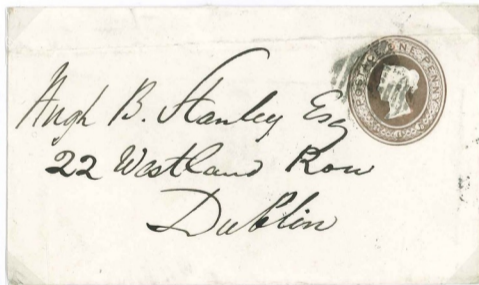 POSTAGE ONE PENNY
Hugh B. Stanley Esq
22 Westland Row
Dublin